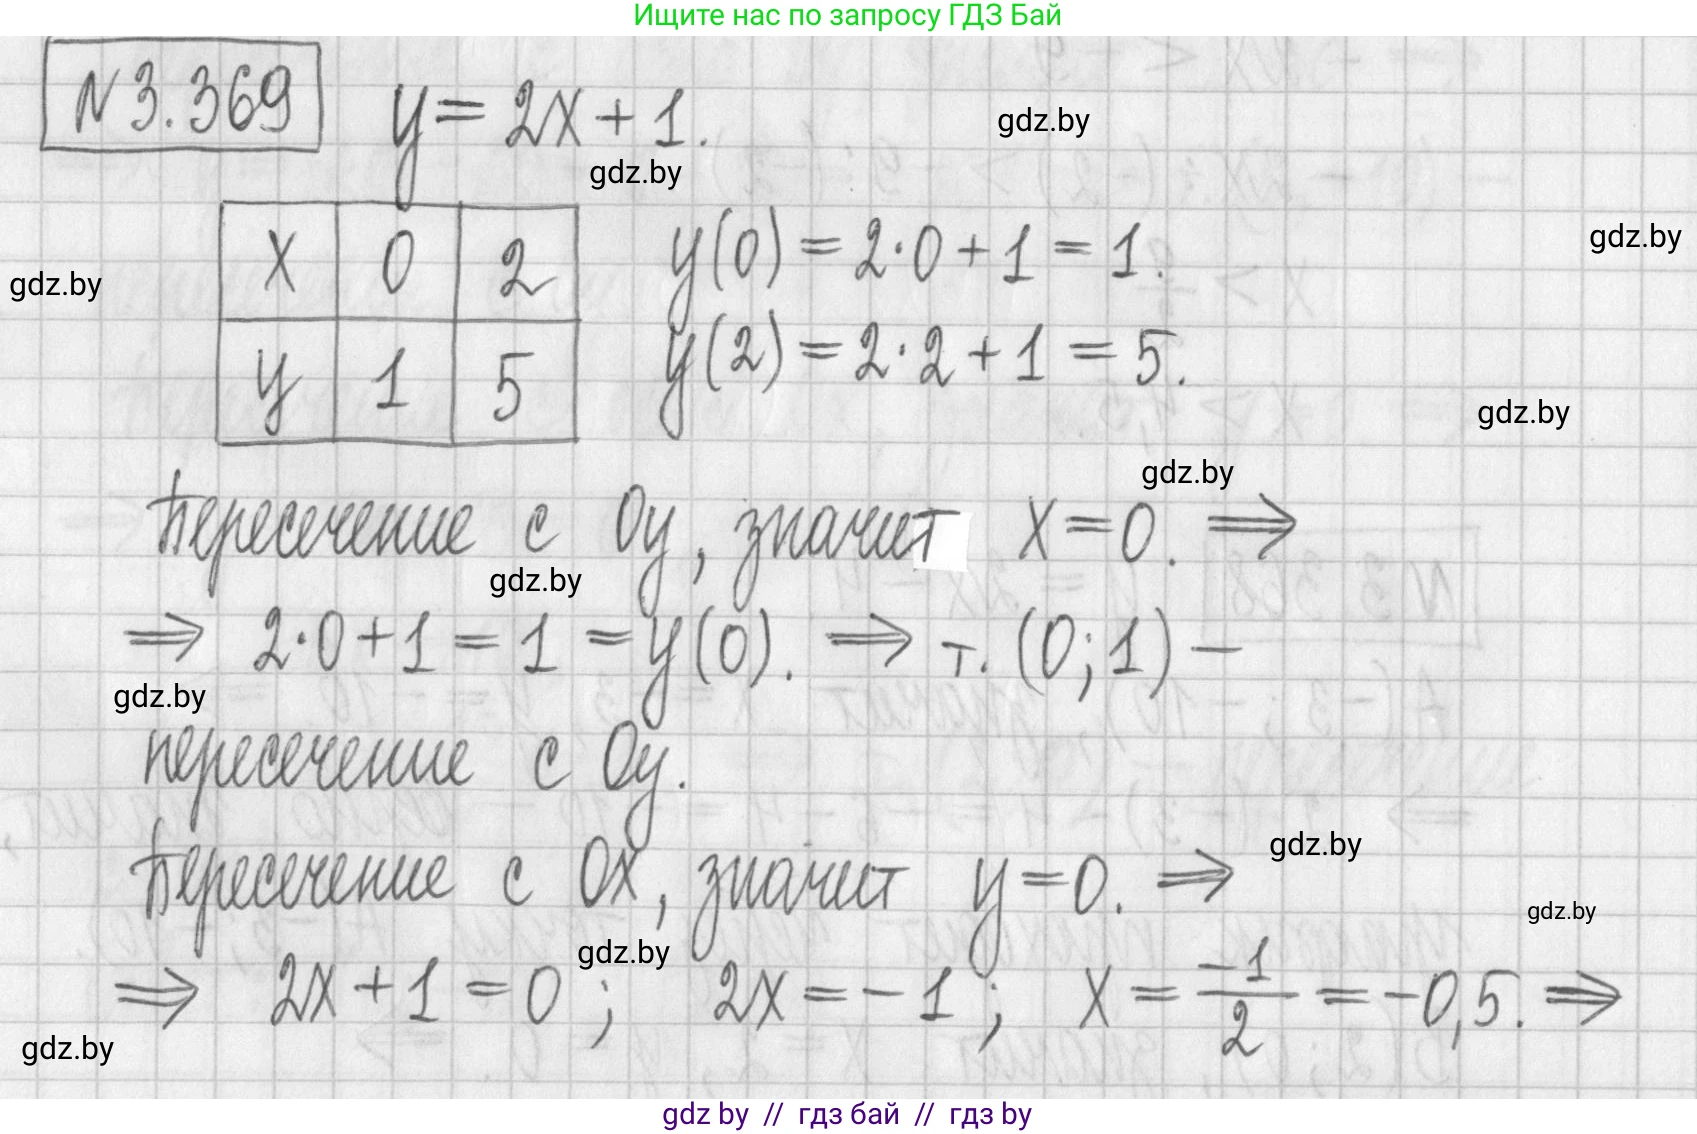 Ищите нас по запросу ГДЗ Бай
N 3.369 y = 2x + 1.
gdz.by
gdz.by
x 0 2 y(0) = 2·0 + 1 = 1.
gdz.by
gdz.by
y 1 5 y(2) = 2·2 + 1 = 5.
gdz.by
gdz.by
Пересечение с Oy, значит x = 0. ⇒
gdz.by
⇒ 2·0 + 1 = 1 = y(0). ⇒ т. (0; 1) –
gdz.by
пересечение с Oy.
gdz.by
Пересечение с Ox, значит y = 0. ⇒
gdz.by
gdz.by
⇒ 2x + 1 = 0; 2x = -1; x = -1/2 = -0,5. ⇒
gdz.by
gdz by // гдз бай // гдз by